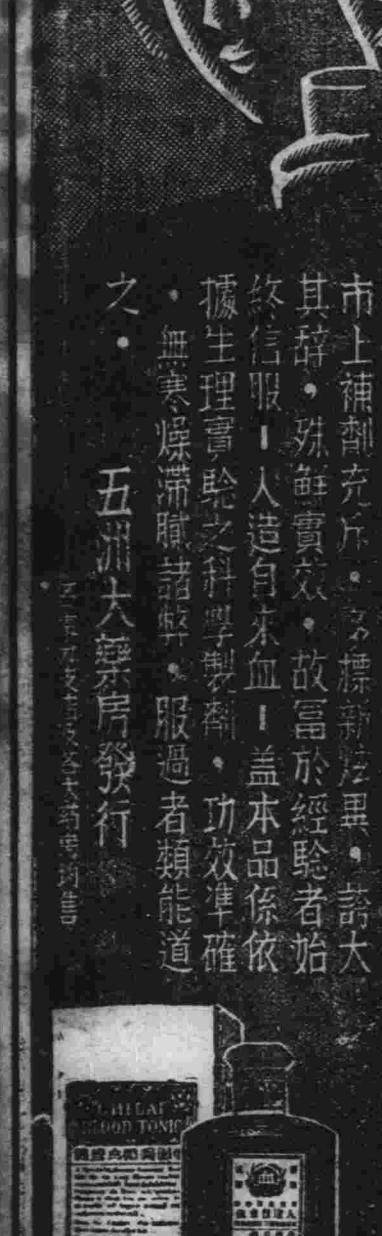 市上補劑充斥。標新炫異。誇大
其辞，殊鮮實效。故富於經驗者始
終信服ー人造自來血ー盖本品係依
據生理實驗之科學製劑。功效準確
。無寒燥滯膩諸弊。服過者類能道
之。
五洲大藥房發行
及各大药房均售
BLOOD TONIC